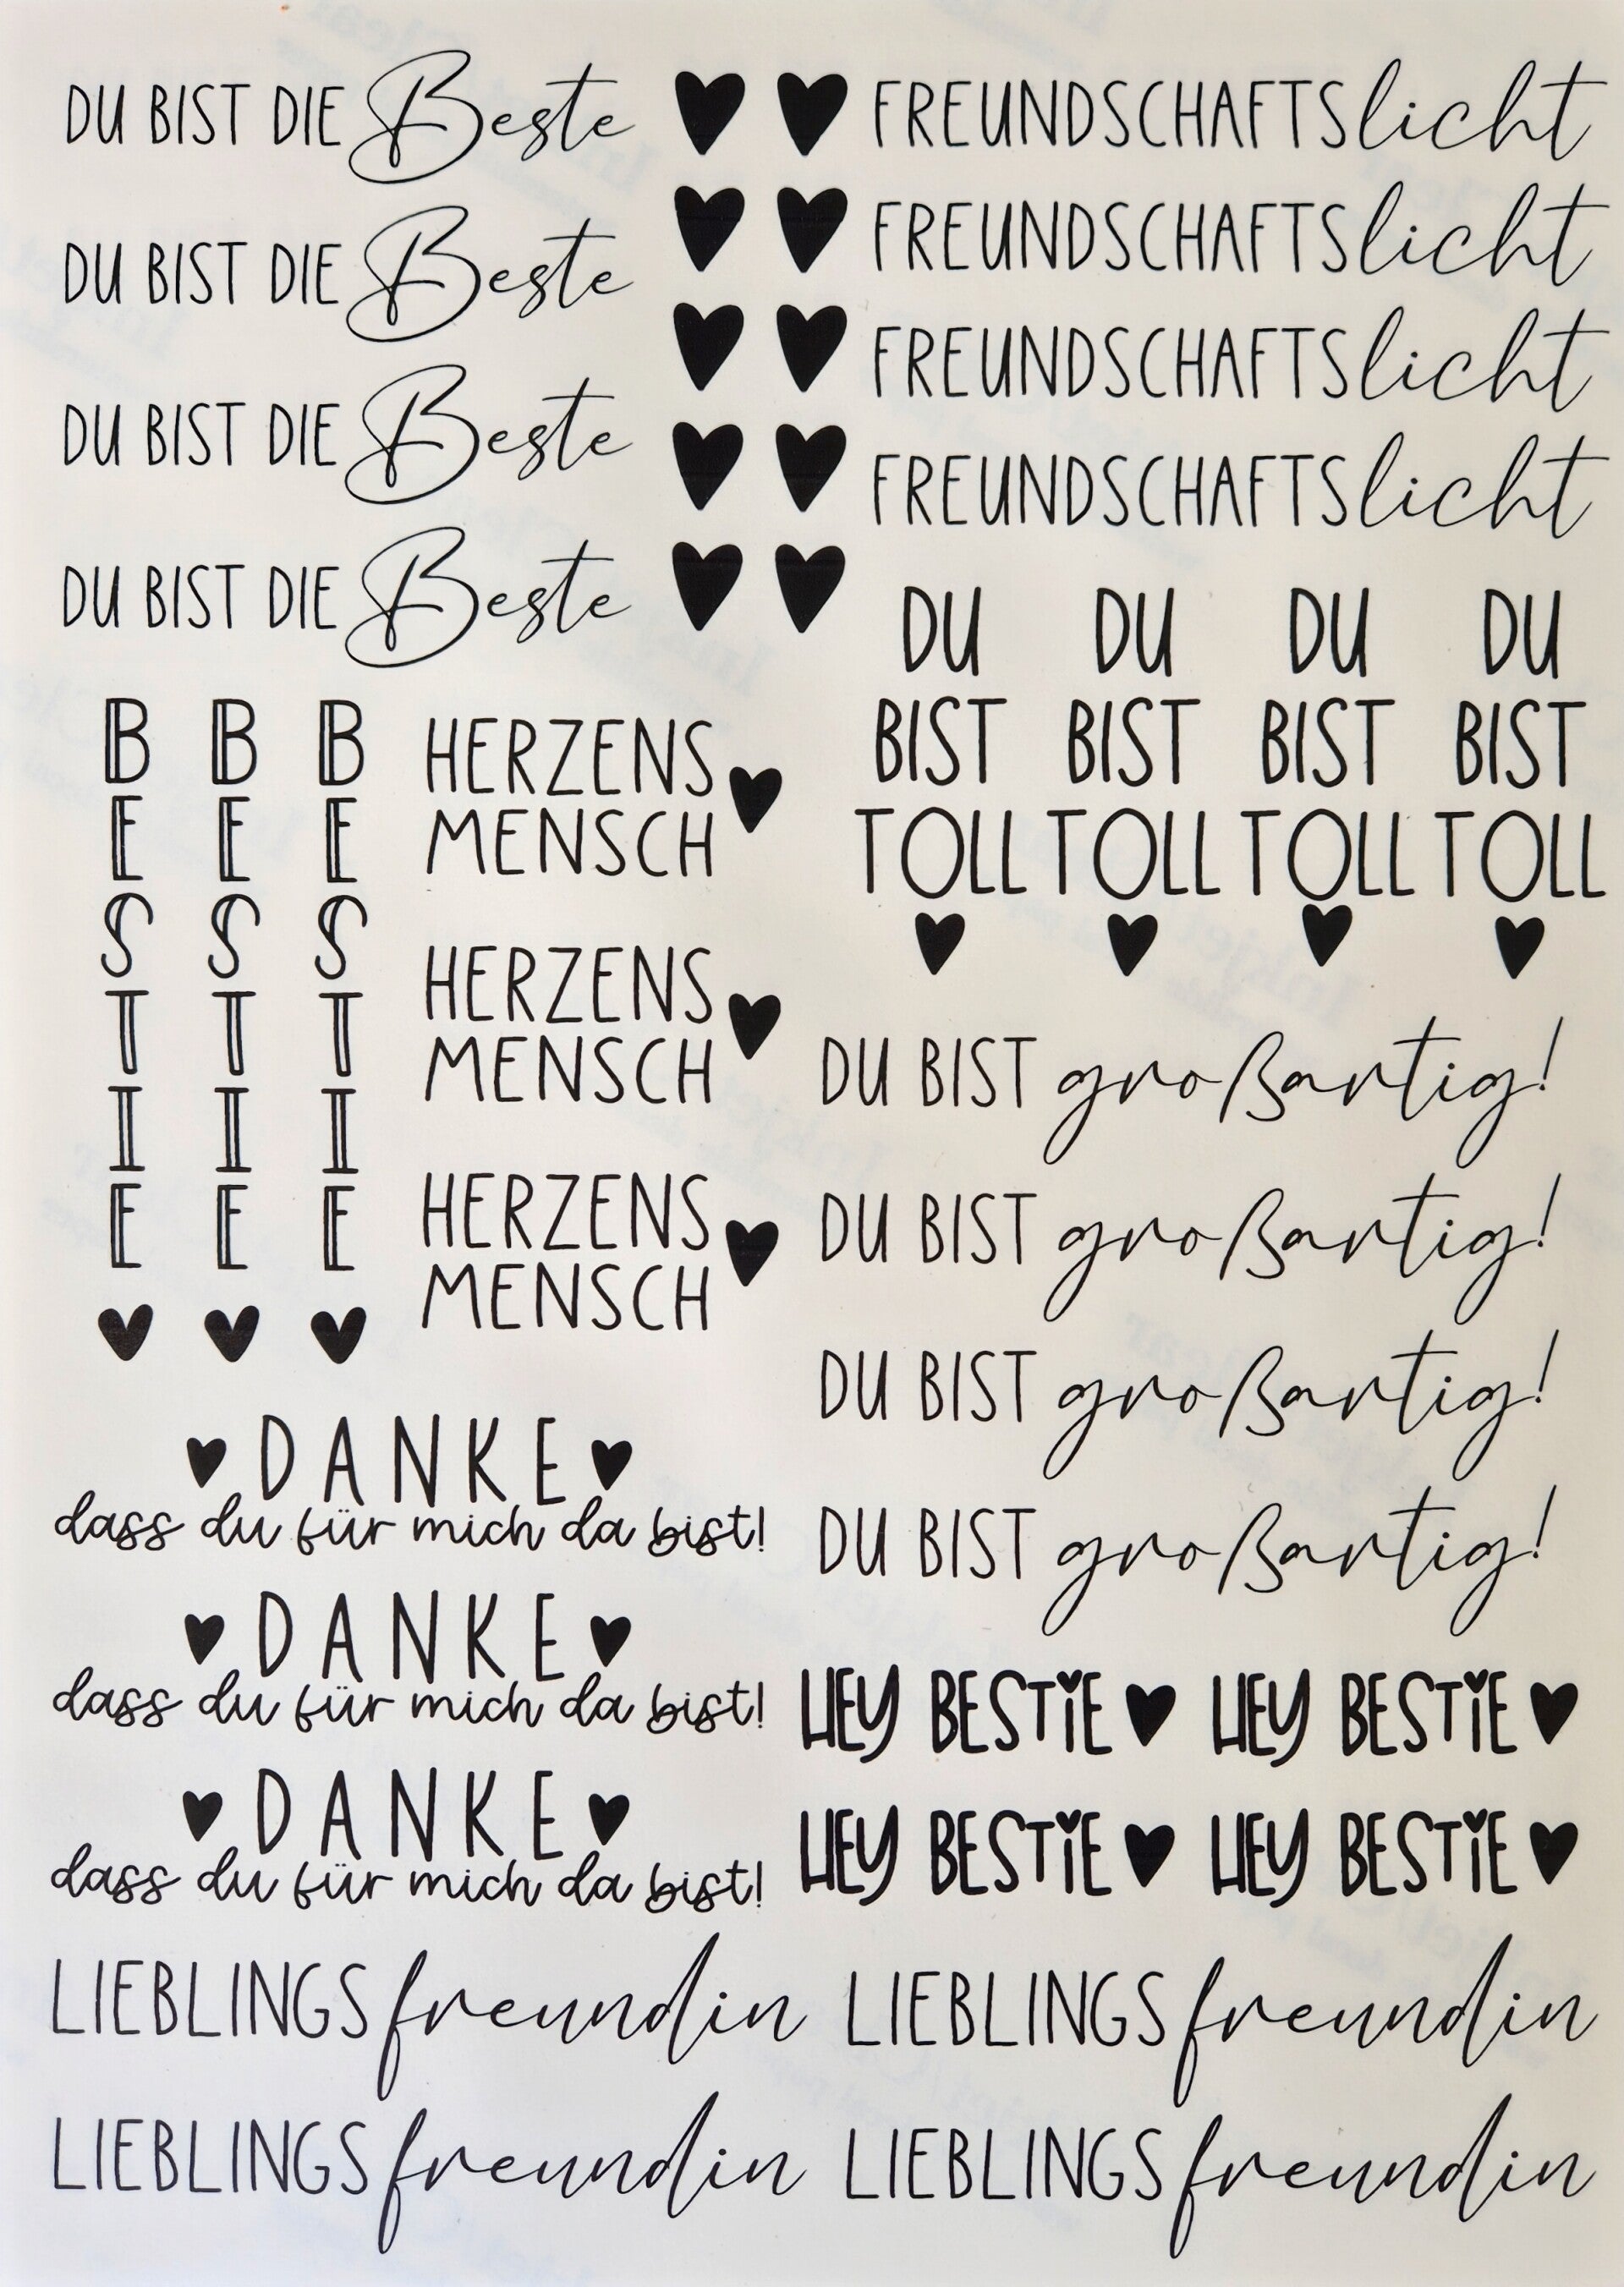 DU BIST DIE Beste
DU BIST DIE Beste
DU BIST DIE Beste
DU BIST DIE Beste
FREUNDSCHAFTSlicht
FREUNDSCHAFTSlicht
FREUNDSCHAFTSlicht
FREUNDSCHAFTSlicht
BESTIE
BESTIE
BESTIE
HERZENS
MENSCH
HERZENS
MENSCH
HERZENS
MENSCH
DU
BIST
TOLL
DU
BIST
TOLL
DU
BIST
TOLL
DU
BIST
TOLL
DU BIST großartig!
DU BIST großartig!
DU BIST großartig!
DU BIST großartig!
DANKE
dass du für mich da bist!
DANKE
dass du für mich da bist!
DANKE
dass du für mich da bist!
HEY BESTIE HEY BESTIE
HEY BESTIE HEY BESTIE
LIEBLINGSfreundin LIEBLINGSfreundin
LIEBLINGSfreundin LIEBLINGSfreundin